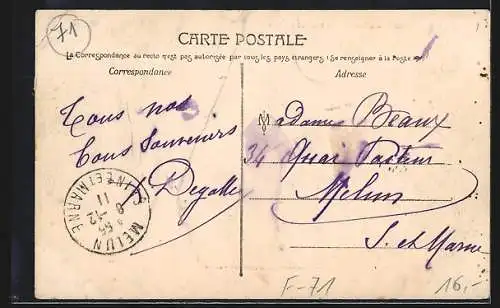 71
CARTE POSTALE
La Correspondance au recto n'est pas autorisée par tous les pays étrangers (Se renseigner à la Poste)
Correspondance
Adresse
Tous nos
bons Souvenirs
Degalle
Madame Beaux
34 Quai Pasteur
Melun
S. et Marne
MELUN
SEINE-ET-MARNE
8-12
11
F-71
16,-